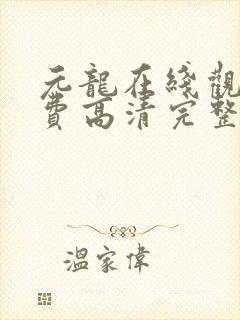 元龍在綫觀
費高清完整
溫家偉